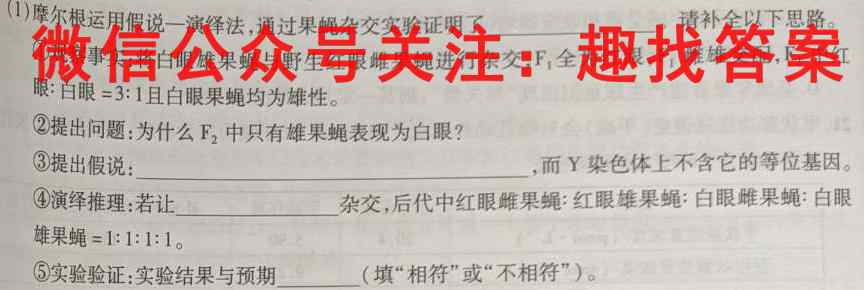 (1)摩尔根运用假说—演绎法,通过果蝇杂交实验证明了____________。请补全以下思路。
微信公众号关注：趣找答案
将白眼雄果蝇与野生红眼雌果蝇进行杂交,F₁全
眼∶白眼=3∶1且白眼果蝇均为雄性。
②提出问题:为什么F₂中只有雄果蝇表现为白眼?
③提出假说:____________,而Y染色体上不含它的等位基因。
④演绎推理:若让____________杂交,后代中红眼雌果蝇∶红眼雄果蝇∶白眼雌果蝇∶白眼
雄果蝇=1∶1∶1∶1。
⑤实验验证:实验结果与预期________(填“相符”或“不相符”)。